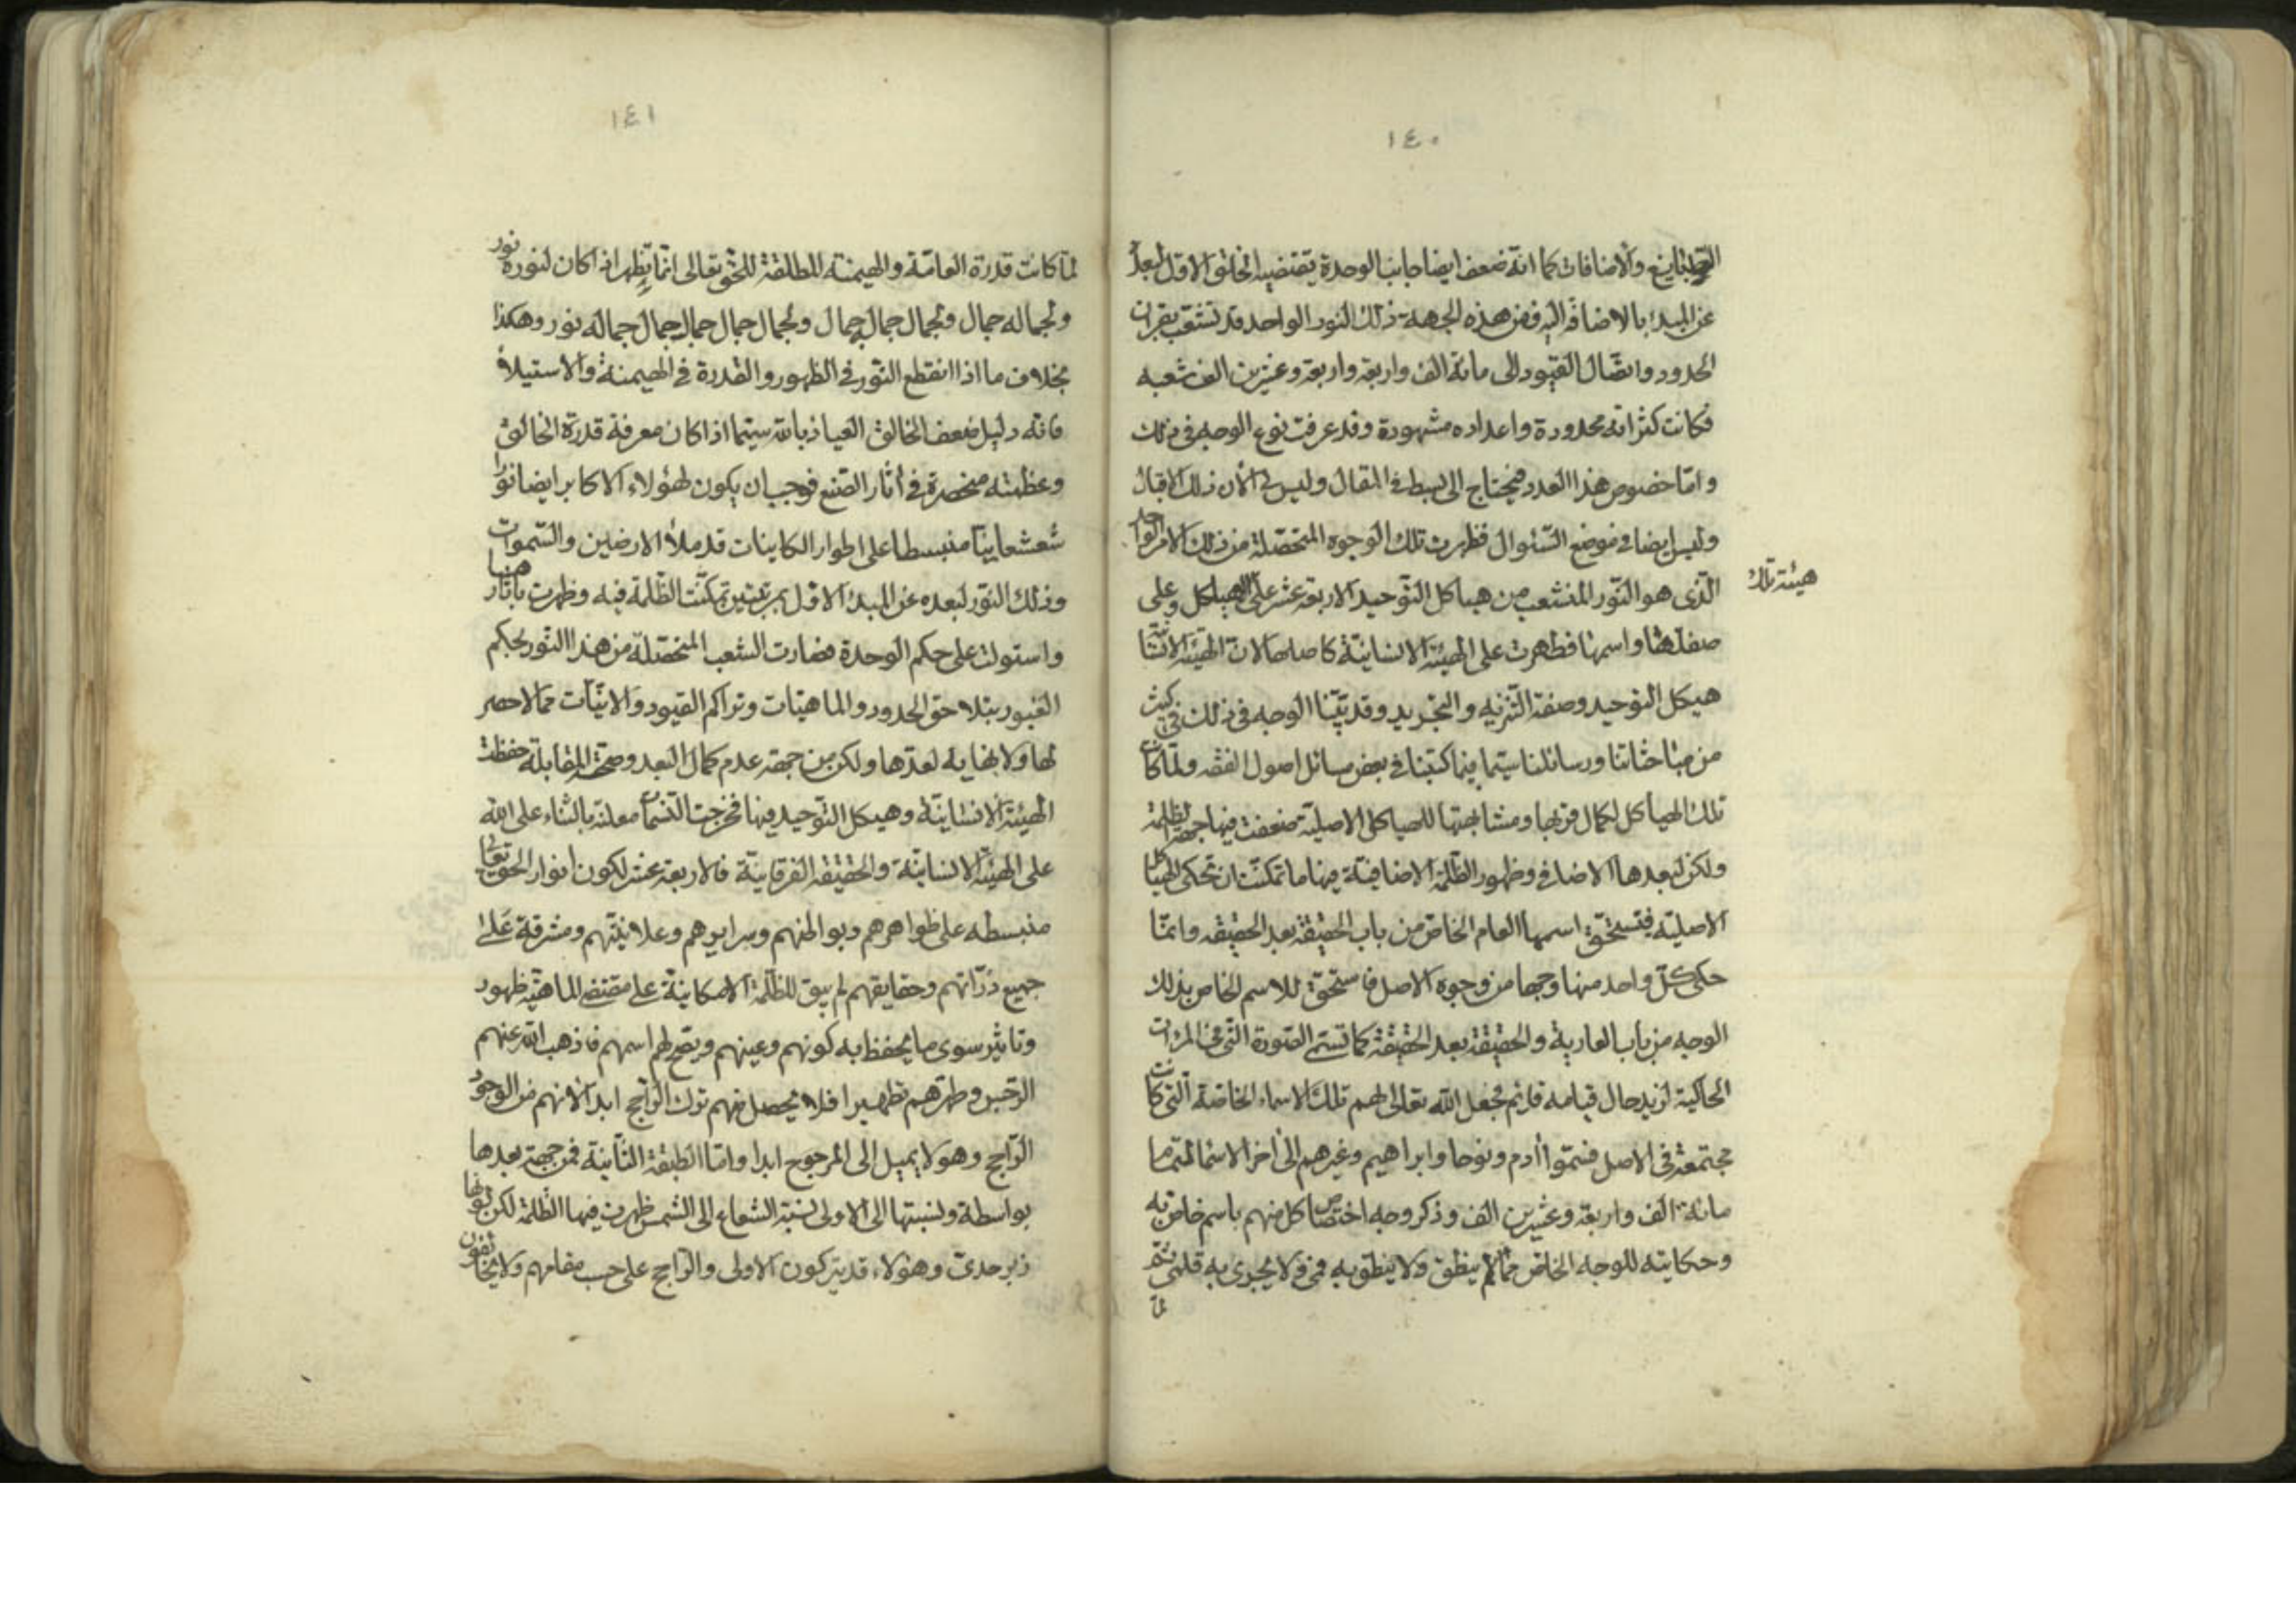 ١٤٠
والاضافات كما انه ضعف ايضا جانب الوحدة يقتضيه الخلق الاول لبعد
عن المبدء بالاضافة اليه فمن هذه الجهة ذلك النور الواحد قد تشعب بقران
الحدود واتصال القيود الى مائة الف واربعة واربعة وعشرين الف شعبه
فكانت كثراته محدودة واعداده مشهودة وقد عرفت نوع الوجه في ذلك
واما خصوص هذا العدد فيحتاج الى بسط في المقال وليس لي الآن ذلك الاقبال
وليس ايضا في موضع السئوال فظهرت تلك الوجوه المتحصلة من ذلك الامر الواحد
الذى هو النور المنشعب من هياكل التوحيد الاربعة عشر على الهياكل وعلى
هيئة تلك
صفتها واسمها فظهرت على الهيئة الانسانية كاصلها لان الهيئة الانسانية
هيكل التوحيد وصفة التنزيه والتجريد وقد بينا الوجه في ذلك في كثير
من مباحثاتنا ورسائلنا سيما فيما كتبنا في بعض مسائل اصول الفقه ولما كانت
تلك الهياكل لكمال قربها ومشابهتها للهياكل الاصلية ضعفت فيها جهة الظلمة
ولكن لبعدها الاضافي وظهور الظلمة الاضافية فيها ما تمكنت ان تحكى الهياكل
الاصلية فتستحق اسمها العام الخاص من باب الحقيقة بعد الحقيقة وانما
حكى كل واحد منها وجها من وجوه الاصل فاستحق للاسم الخاص بذلك
الوجه من باب العارية والحقيقة بعد الحقيقة كما تسمى الصورة التي في المرات
الحاكية لزيد حال قيامه قائم فجعل الله تعالى لهم تلك الاسماء الخاصة التي كانت
مجتمعة في الاصل فسموا آدم ونوحا وابراهيم وغيرهم الى اخر الاسماء المتممة
مائة الف واربعة وعشرين الف وذكر وجه اختصاص كل منهم باسم خاص به
وحكايته للوجه الخاص مما لم ينطق ولا ينطق به فمي ولا يجرى به قلمي ثم
لما
١٤١
لما كانت قدرة العامة والهيمنة المطلقة للحق تعالى انما يظهر اذا كان لنوره نور
ولجماله جمال ولجمال جمال جمال ولجمال جمال جمال جمال جماله نور وهكذا
بخلاف ما اذا انقطع النور في الظهور والقدرة في الهيمنة والاستيلاء
فانه دليل ضعف الخالق العياذ بالله سيما اذا كان معرفة قدرة الخالق
وعظمته منحصرة في اثار الصنع فوجب ان يكون لهؤلاء الاكابر ايضا نورا
شعشعانيا منبسطا على اطوار الكاينات قد ملأ الارضين والسموات
وذلك النور لبعده عن المبدء الاول بمرتبتين تمكنت الظلمة فيه وظهرت باثارها
واستولت على حكم الوحدة فصارت الشعب المتحصلة من هذا النور بحكم
الغيور بتلاحق الحدود والماهيات وتراكم القيود والانيات مما لا حصر
لها ولا نهاية لعدها ولكن من جهة عدم كمال البعد وصحة المقابلة حفظت
الهيئة الانسانية وهيكل التوحيد فيها فخرجت النسمات معلنة بالثناء على الله
على الهيئة الانسانية والحقيقة الفرقانية فالاربعة عشر لكون انوار الحق تعالى
منبسطه على ظواهرهم وبواطنهم وسرايرهم وعلانيتهم ومشرقة على
جميع ذراتهم وحقايقهم لم يبق للظلمة الامكانية على مقتضى الماهية ظهور
وتاثير سوى ما يحفظ به كونهم وعينهم ويصح لهم اسمهم فاذهب الله عنهم
الرجس وطهرهم تطهيرا فلا يحصل منهم ترك الراجح ابدا لانهم من الوجود
الراجح وهو لا يميل الى المرجوح ابدا واما الطبقة الثانية فمن جهة بعدها
بواسطة ونسبتها الى الاولى نسبة الشعاع الى الشمس ظهرت فيها الظلمة لكن لونها
زبرجدى وهؤلاء قد يتركون الاولى والراجح على حسب مقامهم ولا يخالفون